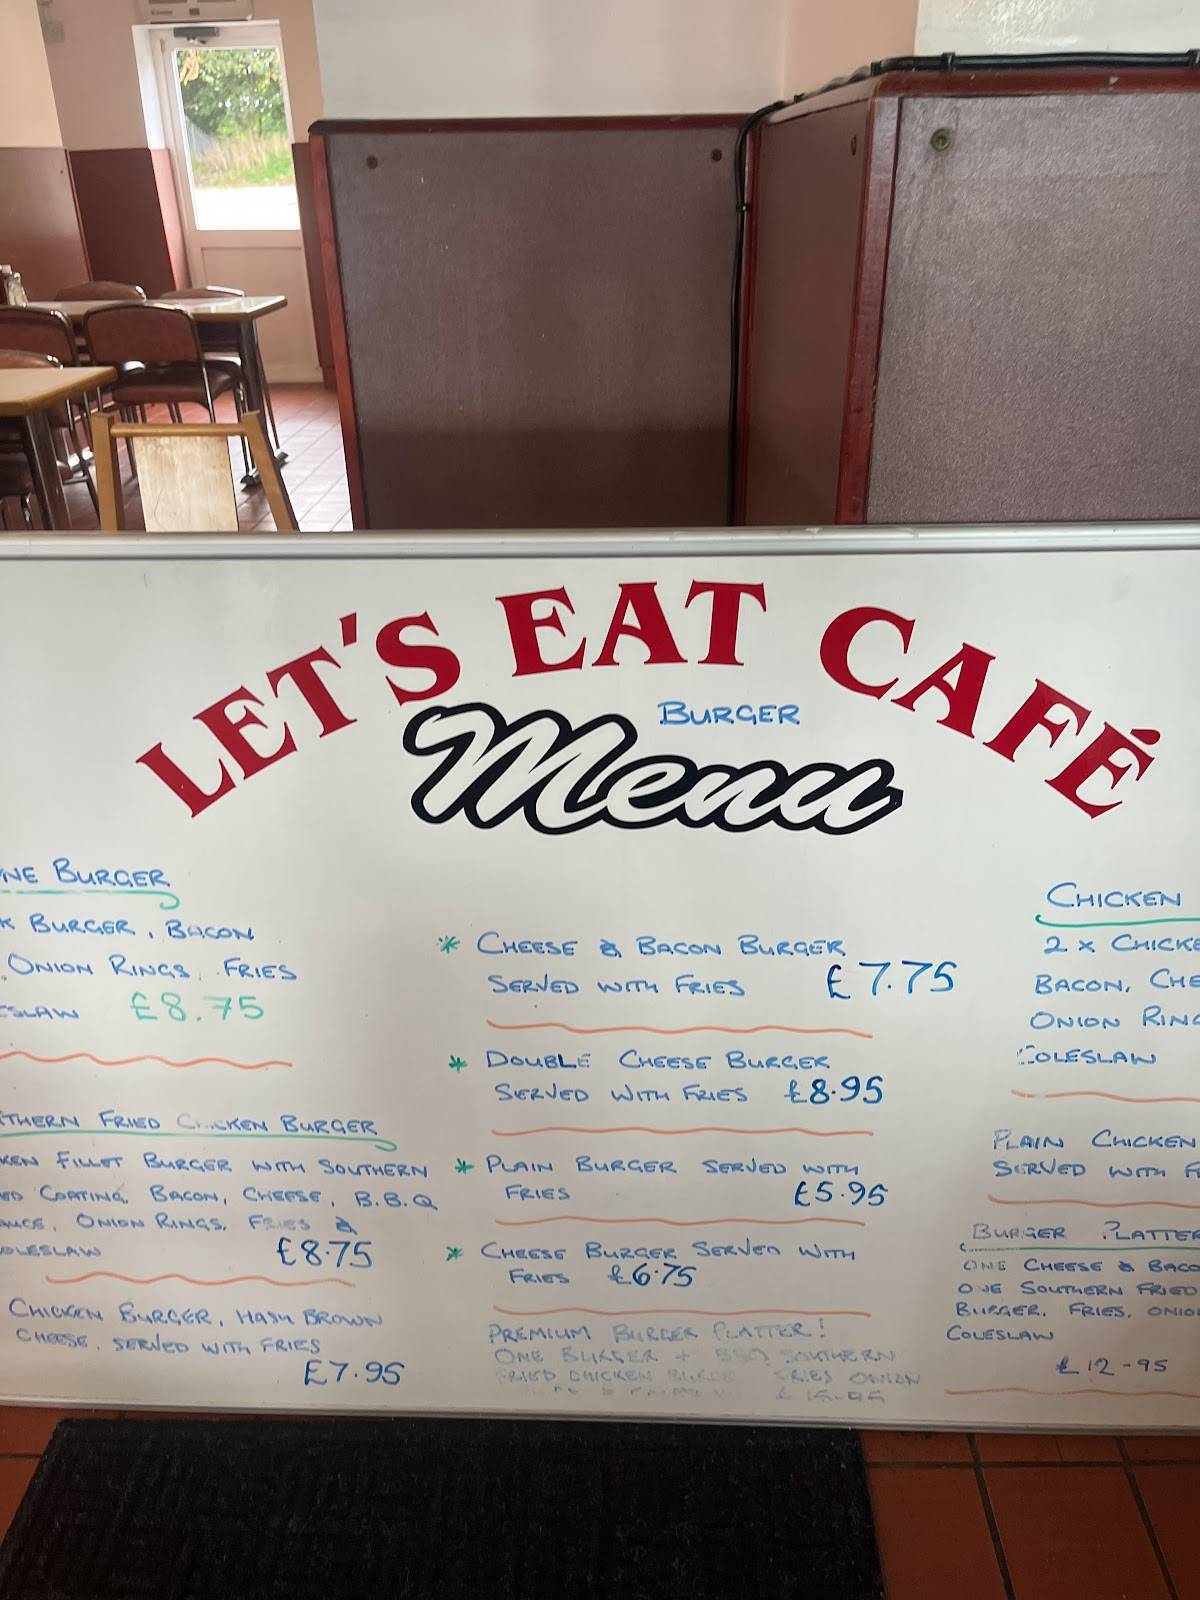 LET'S EAT CAFÉ
BURGER
Menu
BURGER
BURGER, BACON
ONION RINGS, FRIES
£8.75
FRIED CHICKEN BURGER
FILLET BURGER WITH SOUTHERN
COATING, BACON, CHEESE, B.B.Q
ONION RINGS, FRIES &
£8.75
CHICKEN BURGER, HASH BROWN
CHEESE, SERVED WITH FRIES
£7.95
* CHEESE & BACON BURGER
SERVED WITH FRIES £7.75
* DOUBLE CHEESE BURGER
SERVED WITH FRIES £8.95
* PLAIN BURGER SERVED WITH
FRIES £5.95
* CHEESE BURGER SERVED WITH
FRIES £6.75
PREMIUM BURGER PLATTER!
ONE BURGER + BBQ SOUTHERN
FRIED CHICKEN FRIES ONION
CHICKEN
2 x
BACON,
ONION
COLESLAW
PLAIN CHICKEN
SERVED WITH
BURGER PLATTER
ONE CHEESE &
ONE SOUTHERN FRIED
BURGER, FRIES,
COLESLAW
£12-95